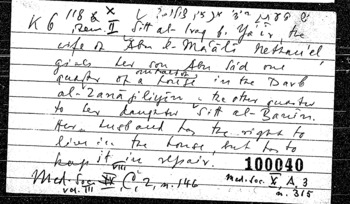 K 6 118 & X
II Sitt al-Iraq b. Yair the
wife of Abu l-Maʿālī Nethanel
gives her son Abu Saʿīd one
quarter of a house in the Darb
al-Zanājiliyīn, the other quarter
to her daughter Sitt al-Banīn.
Her husband has the right to
live in the house but has to
keep it in repair.
100040
Med. Soc. VIII C, 2, n. 146
vol. III
Med. Soc. X A, 3
n. 315